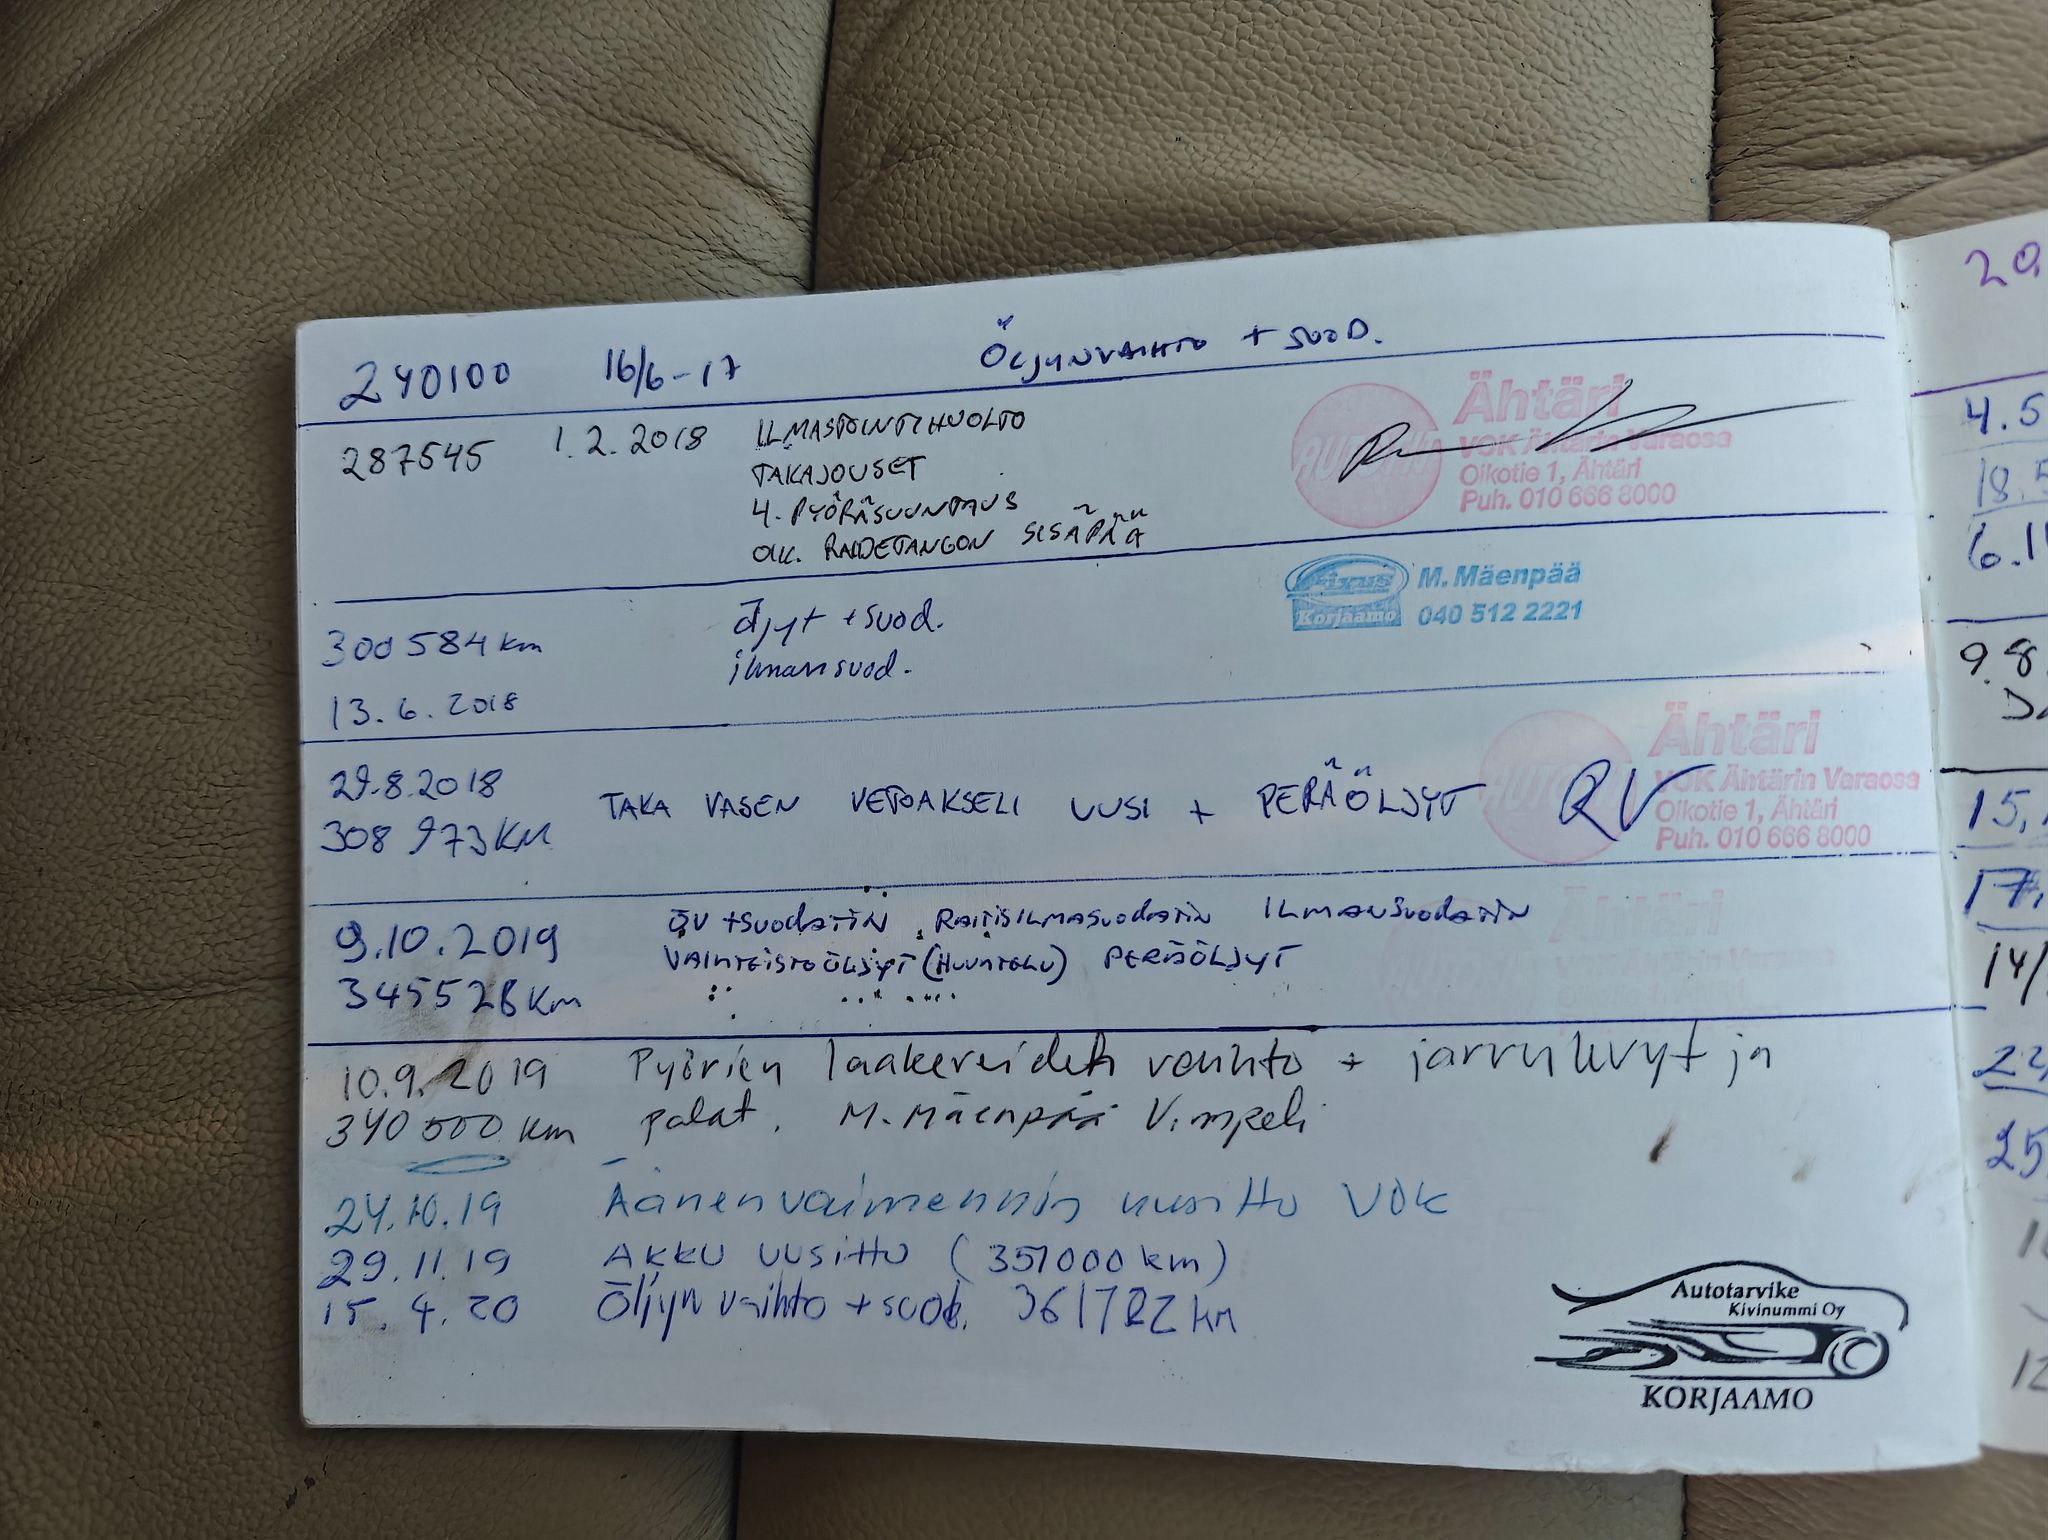 240100 16/6-17 ÖLJYNVAIHTO + SUOD.
287545 1.2.2018 ILMASTOINTIHUOLTO
TAKAJOUSET
4. PYÖRÄSUUNTAUS
OIK. RAIDETANGON SISÄPÄÄ
Ähtäri
VOK Ähtärin Varaosa
Oikotie 1, Ähtäri
Puh. 010 666 8000
300 584 km öljyt + suod.
ilmansuod.
13.6.2018
Fixus M. Mäenpää
Korjaamo 040 512 2221
29.8.2018
308 973 KM TAKA VASEN VETOAKSELI UUSI + PERÄÖLJYT RV
Ähtäri
VOK Ähtärin Varaosa
Oikotie 1, Ähtäri
Puh. 010 666 8000
9.10.2019 ÖV + SUODATIN, RAITISILMASUODATIN ILMANSUODATIN
345528 km VAIHTEISTOÖLJYT (HUUHTELU) PERÄÖLJYT
Ähtäri
10.9.2019 Pyörien laakereiden vaihto + jarrulevyt ja
340 000 km palat. M. Mäenpää Vimpeli
24.10.19 Äänenvaimennin uusittu VOK
29.11.19 AKKU UUSITTU (351000 km)
15.4.20 Öljyn vaihto + suod. 361782 km
Autotarvike
Kivinummi Oy
KORJAAMO
20.
4.5
18.5
6.11
9.8.
15.
17.
14/
22.
25